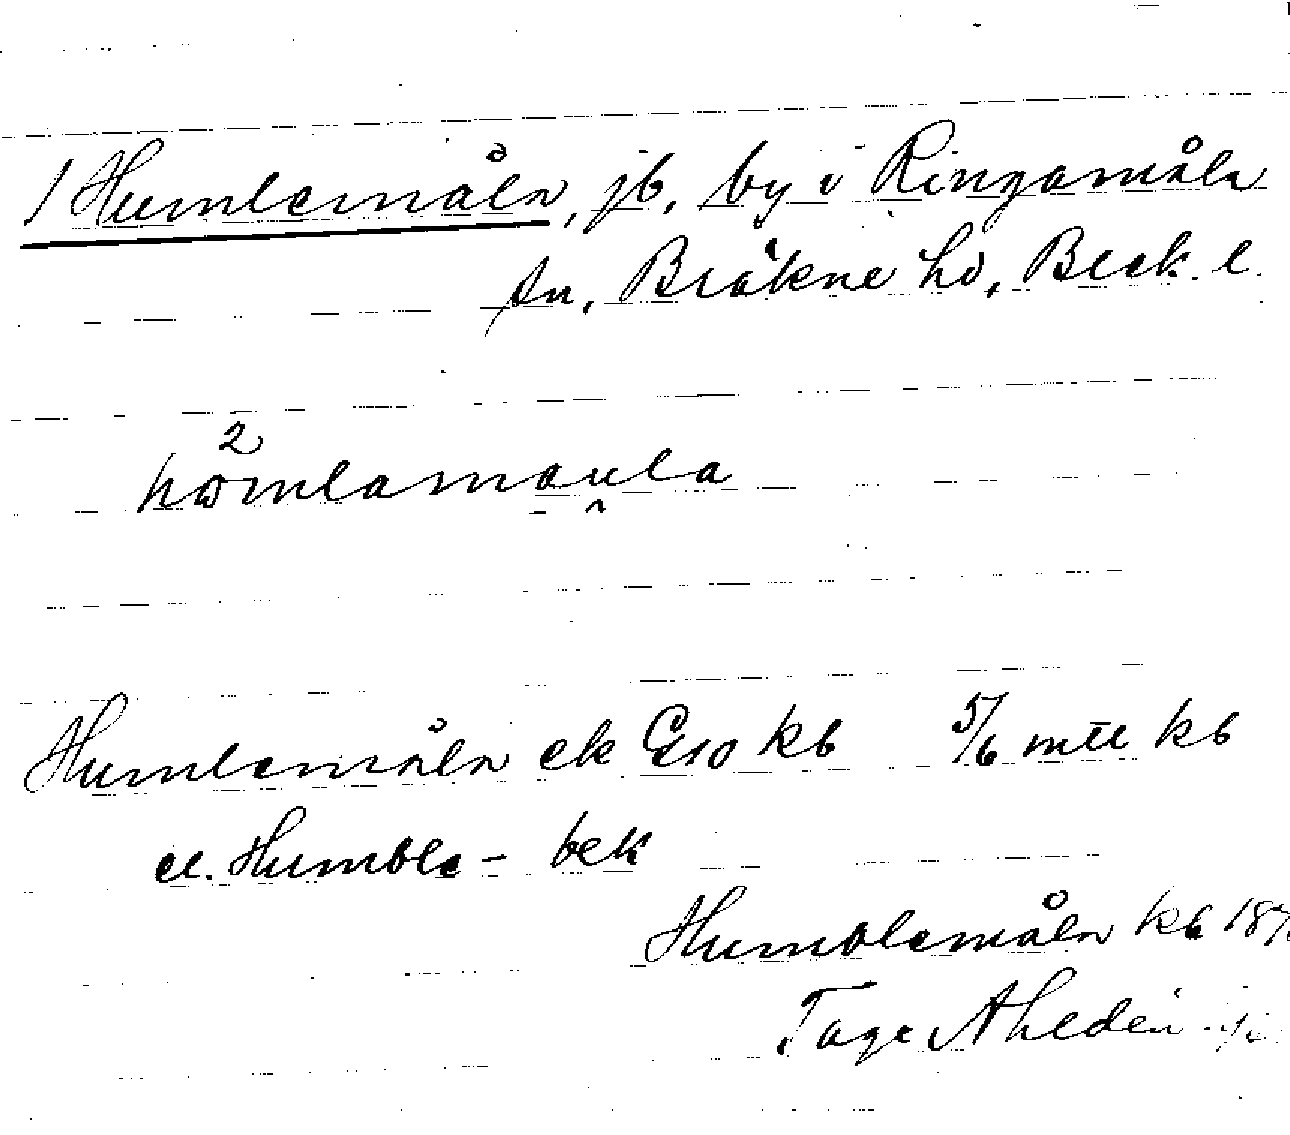 1 Humlemåla, jb. by i Ringamåla
sn, Bräkne hd, Blek. l.
2
hömlamaula
Humlemåla ek G E10 kb 5/6 mtl kb
el. Humble- bek
Humblemåla kb 18
Tage Ahldén